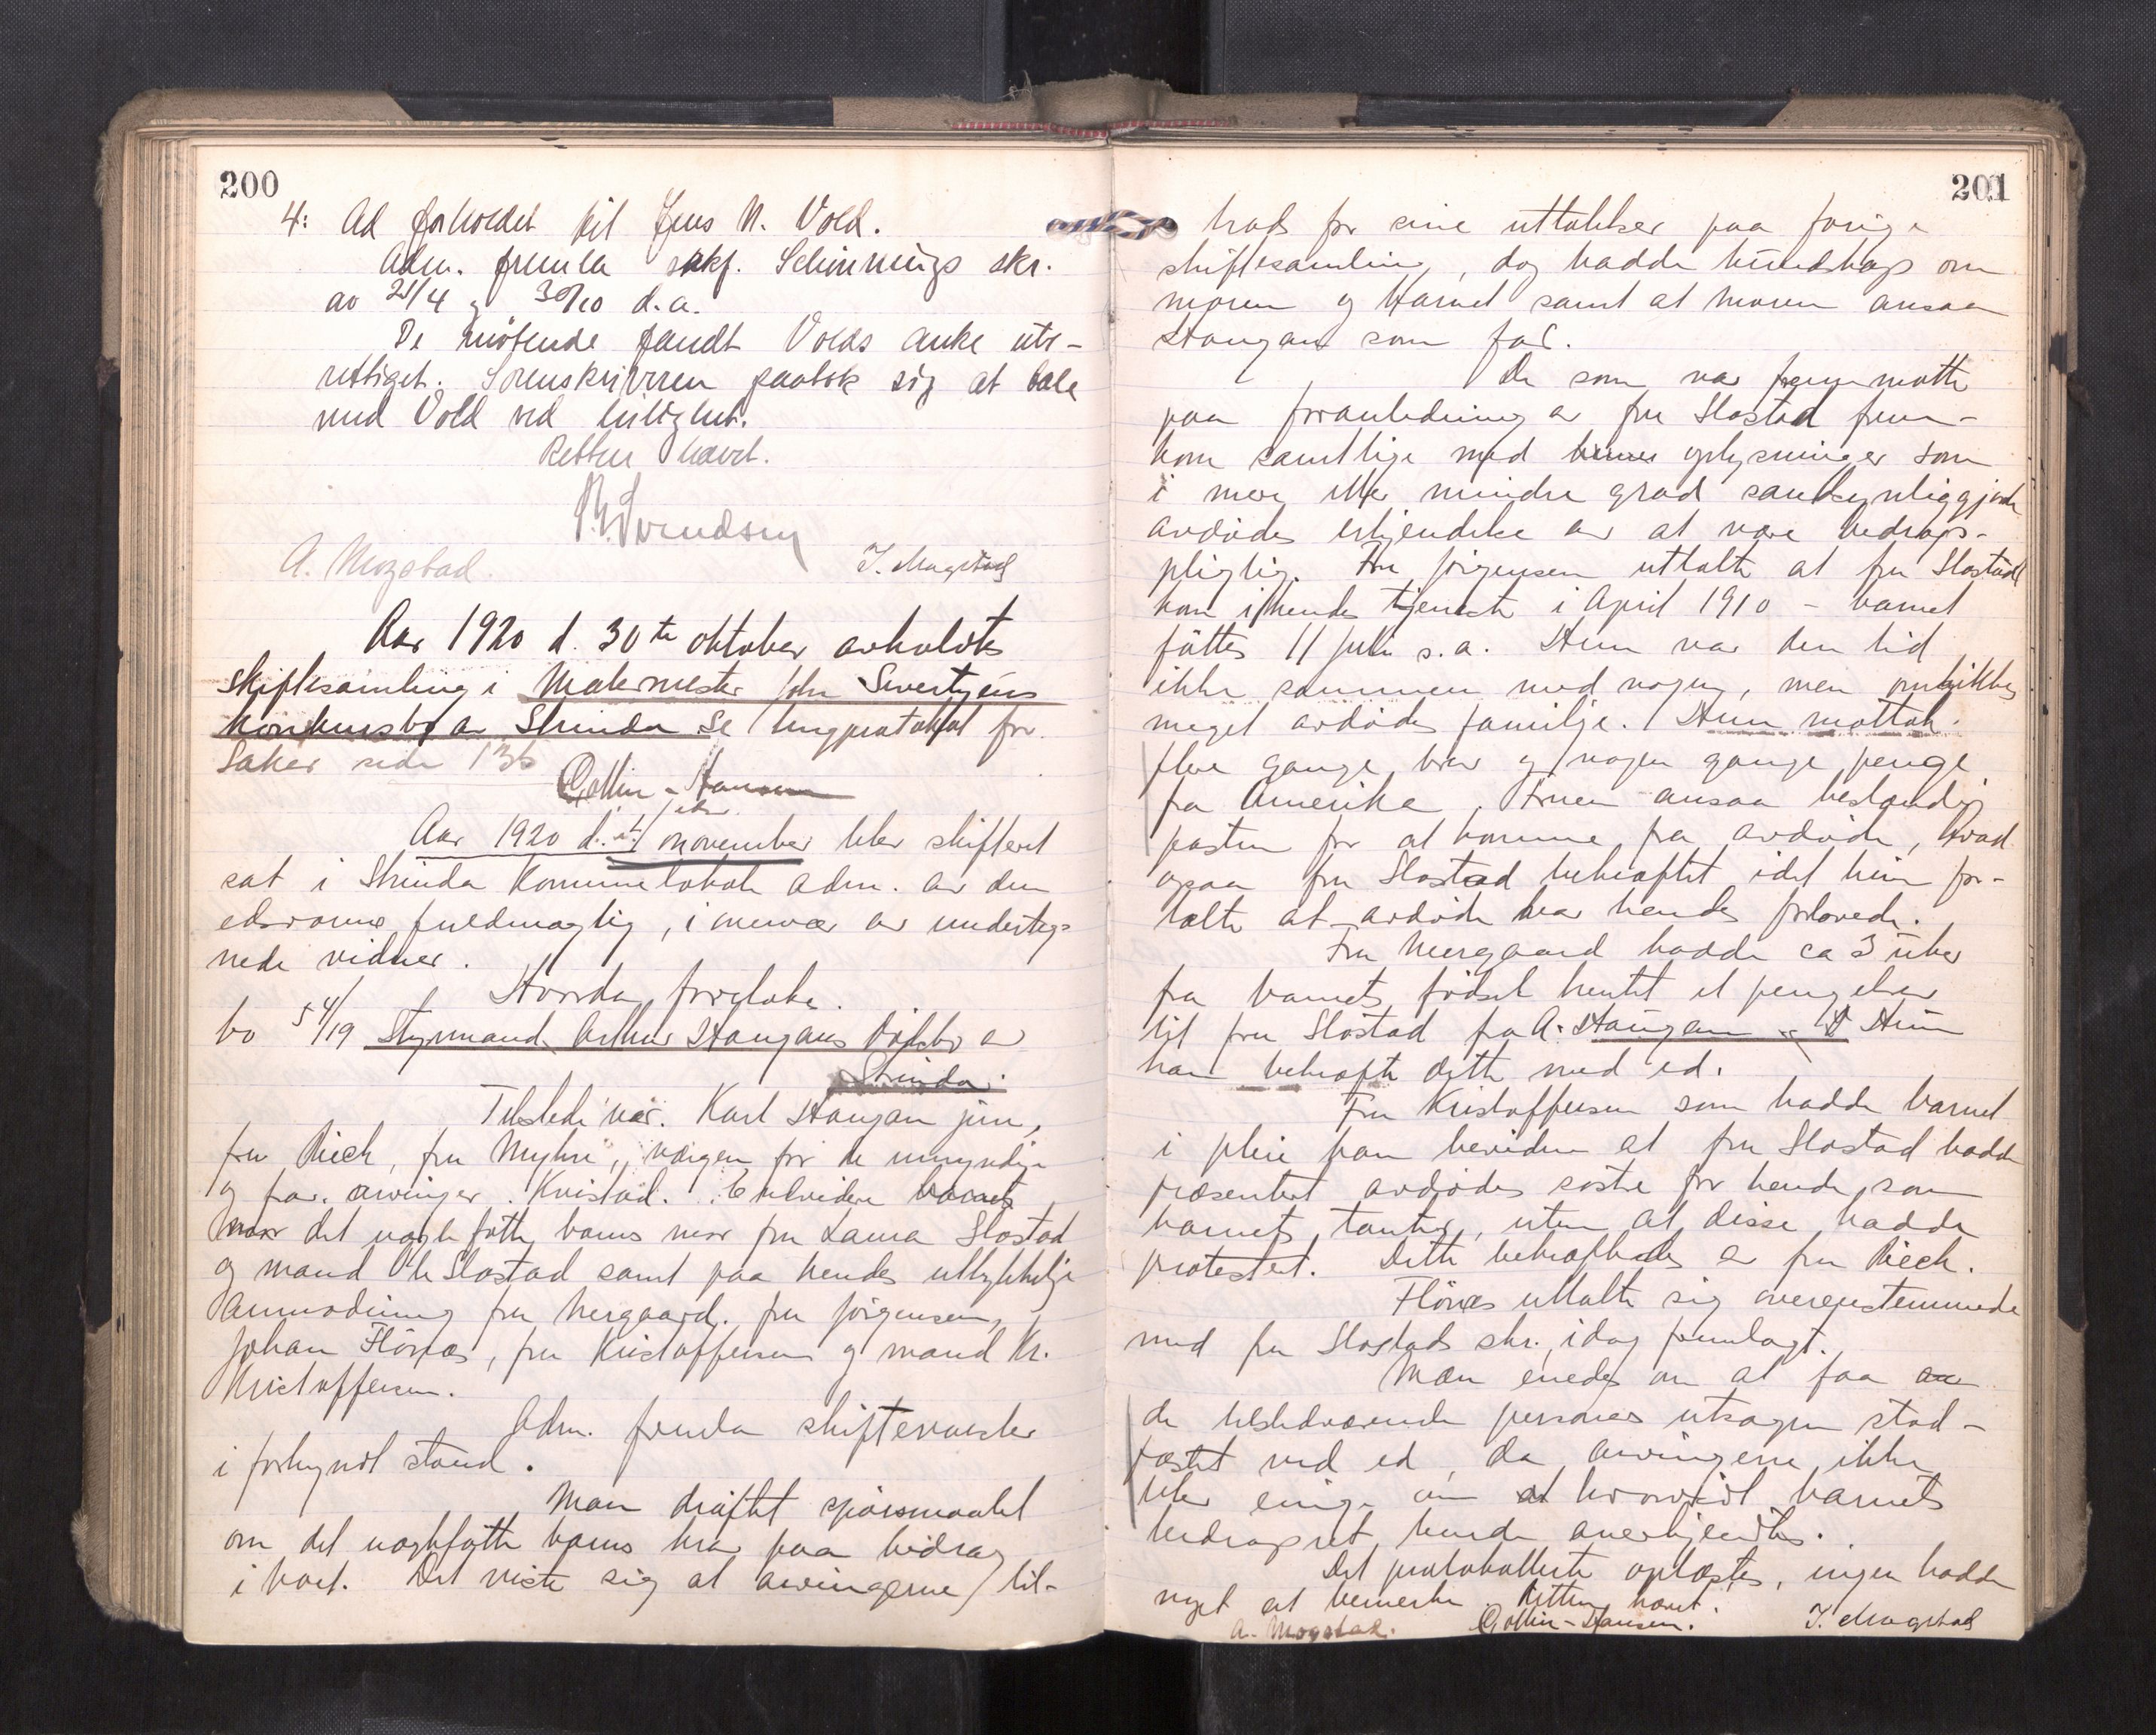 200
4: Ad forholdet til Jens N. Vold.
Adm. fremla sakf. Schinnings skr.
av 21/4 og 30/10 d.a.
De møtende fandt Volds anke ube-
rettiget. Sorenskriveren paatok sig at tale
med Vold ved leilighet.
Retten hævet.
Svendsen
A. Mogstad. J. Mogstad
Aar 1920 d. 30te oktober avholdtes
skiftesamling i Malermester John Sivertzens
konkursbo av Strinda se tingprotokol for
Saker side 136
Collin-Hansen
Aar 1920 d. 1 november blev skifteret
sat i Strinda kommunelokale adm. av den
edsvorne fuldmægtig, i nærvær av underteg-
nede vidner.
Hvorda foretoks.
bo 54/19 Styrmand Arthur Haugans dødsbo av
Strinda.
Tilstede var. Karl Haugan jun,
fru Rieck, fru Myhre, værgen for de umyndige
og fra. arvinger. Kvistad. Endvidere barnets
mor det uegte fødte barns mor fru Laura Slostad
og mand Ole Slostad samt paa hendes uttrykkelige
anmodning fru Nergaard. fru Jørgensen,
Johan Flönæs, fru Kristoffersen og mand Kr.
Kristoffersen.
Adm. fremla skiftevarsler
i forkyndt stand.
Man drøftet spörsmaalet
om det uegtefødte barns krav paa bidrag
i boet. Det viste sig at arvingerne, til-
201
trods for sine uttalelser paa forrige
skiftesamling, dog hadde kundskap om
moren og barnet samt at moren ansaa
Haugan som far.
De som var fremmøtte
paa foranledning av fru Slostad frem-
kom samtlige med oplysninger som
i mere eller mindre grad sandsynliggjorde
avdødes erkjendelse av at være bidrags-
pligtig. Fru Jörgensen uttalte at fru Slostad
kom i hendes tjeneste i April 1910 - barnet
fødtes 11 juli s.a. Hun var den tid
ikke sammen med nogen, men omgikkes
meget avdødes familje. Hun mottok
flere gange brev og nogen gange penge
fra Amerika. Fruen ansaa bestandig
posten for at komme fra avdøde, hvad
ogsaa fru Slostad bekræftet idet hun for-
talte at avdøde var hendes forlovede.
Fru Nergaard hadde ca 3 uker
fra barnets fødsel hentet et pengebrev
til fru Slostad fra A. Haugan. Hun
kan bekræfte dette med ed.
Fru Kristoffersen som hadde barnet
i pleie kan bevidne at fru Slostad hadde
præsentert avdødes søstre for hende som
barnets tanter, uten at disse hadde
protestert. Dette bekræftedes av fru Rieck.
Flönæs uttalte sig overensstemmende
med fru Slostads skr., idag fremlagt.
Man enedes om at faa
de tilstedeværende personers utsagn stad-
fæstet ved ed, da arvingerne ikke
blev enige om at hvorvidt barnets
bidragsret burde anerkjendes.
Det protokollerte oplæstes, ingen hadde
noget at bemerke. Retten hævet.
A. Mogstad. Collin-Hansen. J. Mogstad